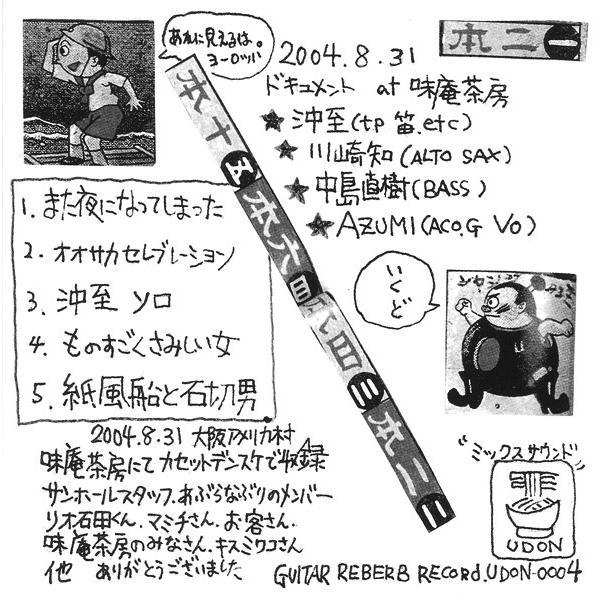 あれに見えるは。
ヨーロッパ
2004.8.31
本二一
ドキュメント at 味庵茶房
★沖至(tp 笛.etc)
★川崎知(ALTO SAX)
★中島直樹(BASS)
★AZUMI(ACO.G VO)
本十五
本六
本二二
1. また夜になってしまった
2. オオサカセレブレーション
3. 沖至 ソロ
4. ものすごくさみしい女
5. 紙風船と石切男
いくど
2004.8.31 大阪アメリカ村
味庵茶房にて カセットデンスケで収録
サンホールスタッフ.あぶらなぶりのメンバー
リオ石田くん.マミチさん.お客さん.
味庵茶房のみなさん.キスミワコさん
他 ありがとうございました
"ミックスサウンド"
UDON
GUITAR REBERB RECORD.UDON-0004